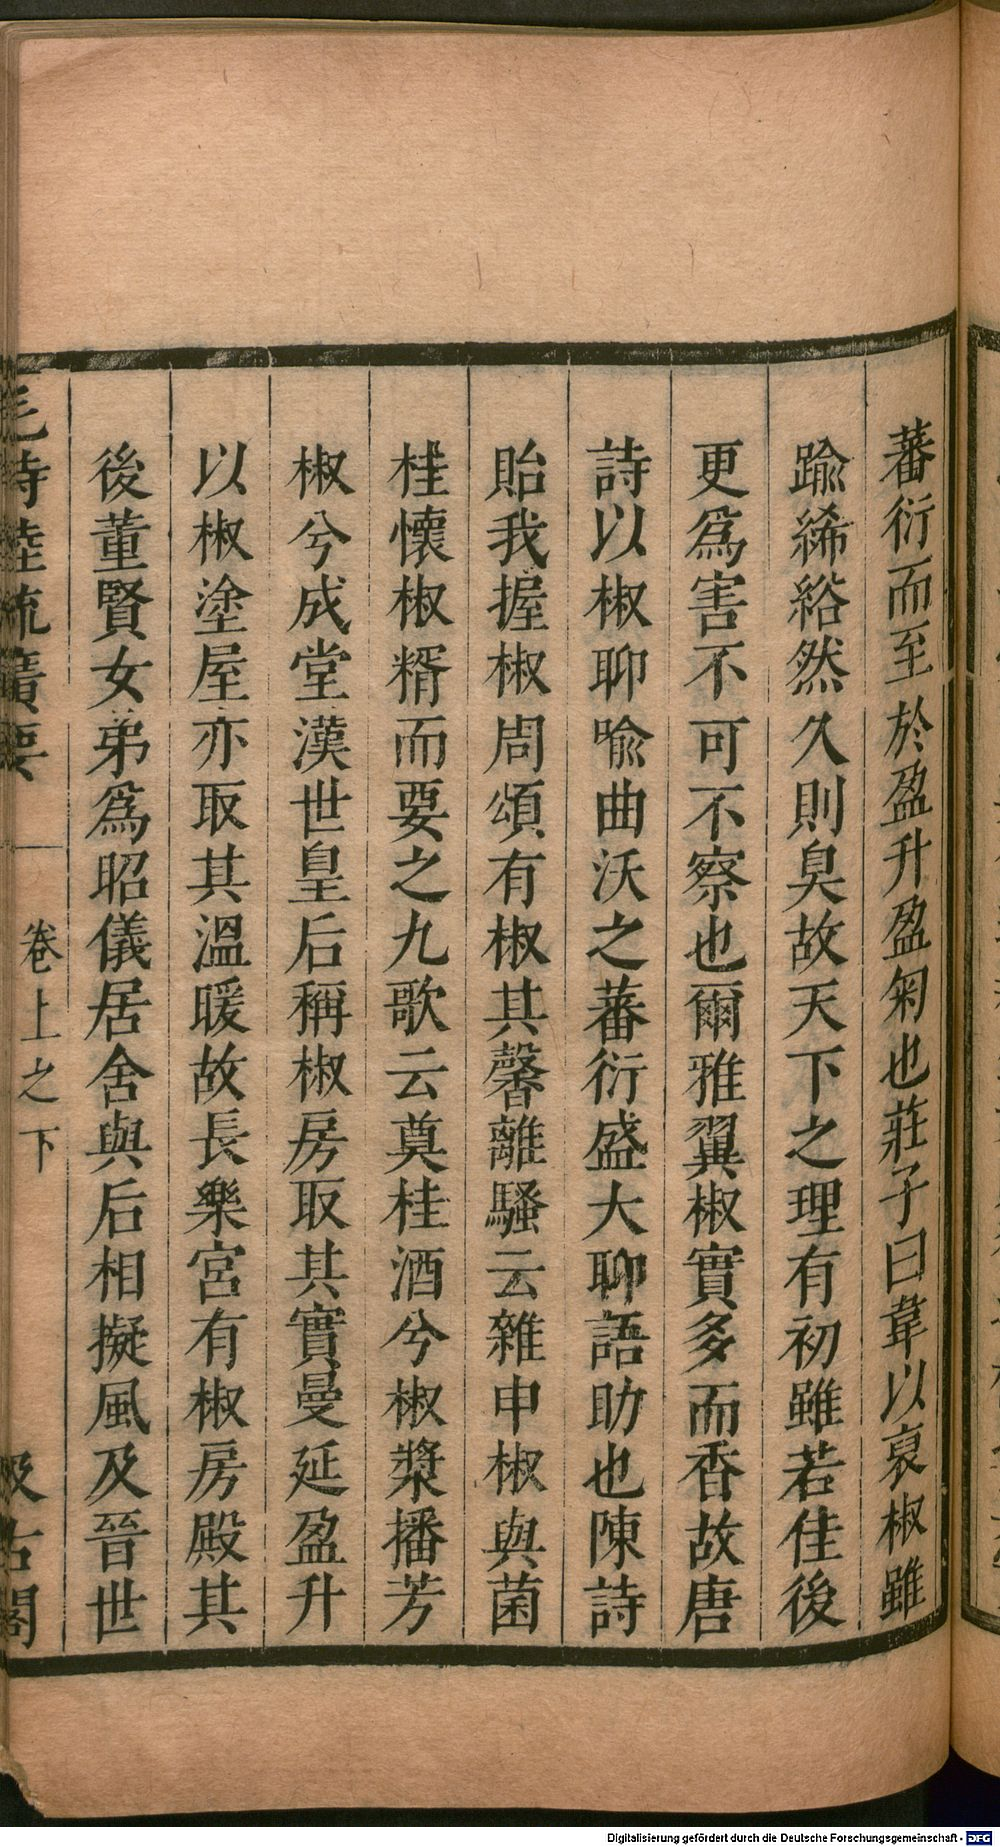 蕃衍而至於盈升盈匊也莊子曰韋以裒椒雖
踰絺綌然久則臭故天下之理有初雖若佳後
更爲害不可不察也爾雅翼椒實多而香故唐
詩以椒聊喻曲沃之蕃衍盛大聊語助也陳詩
貽我握椒周頌有椒其馨離騷云雜申椒與菌
桂懷椒糈而要之九歌云奠桂酒兮椒漿播芳
椒兮成堂漢世皇后稱椒房取其實曼延盈升
以椒塗屋亦取其溫暖故長樂宮有椒房殿其
後董賢女弟爲昭儀居舍與后相擬風及晉世
毛詩陸疏廣要 卷上之下 汲古閣
Digitalisierung gefördert durch die Deutsche Forschungsgemeinschaft - DFG